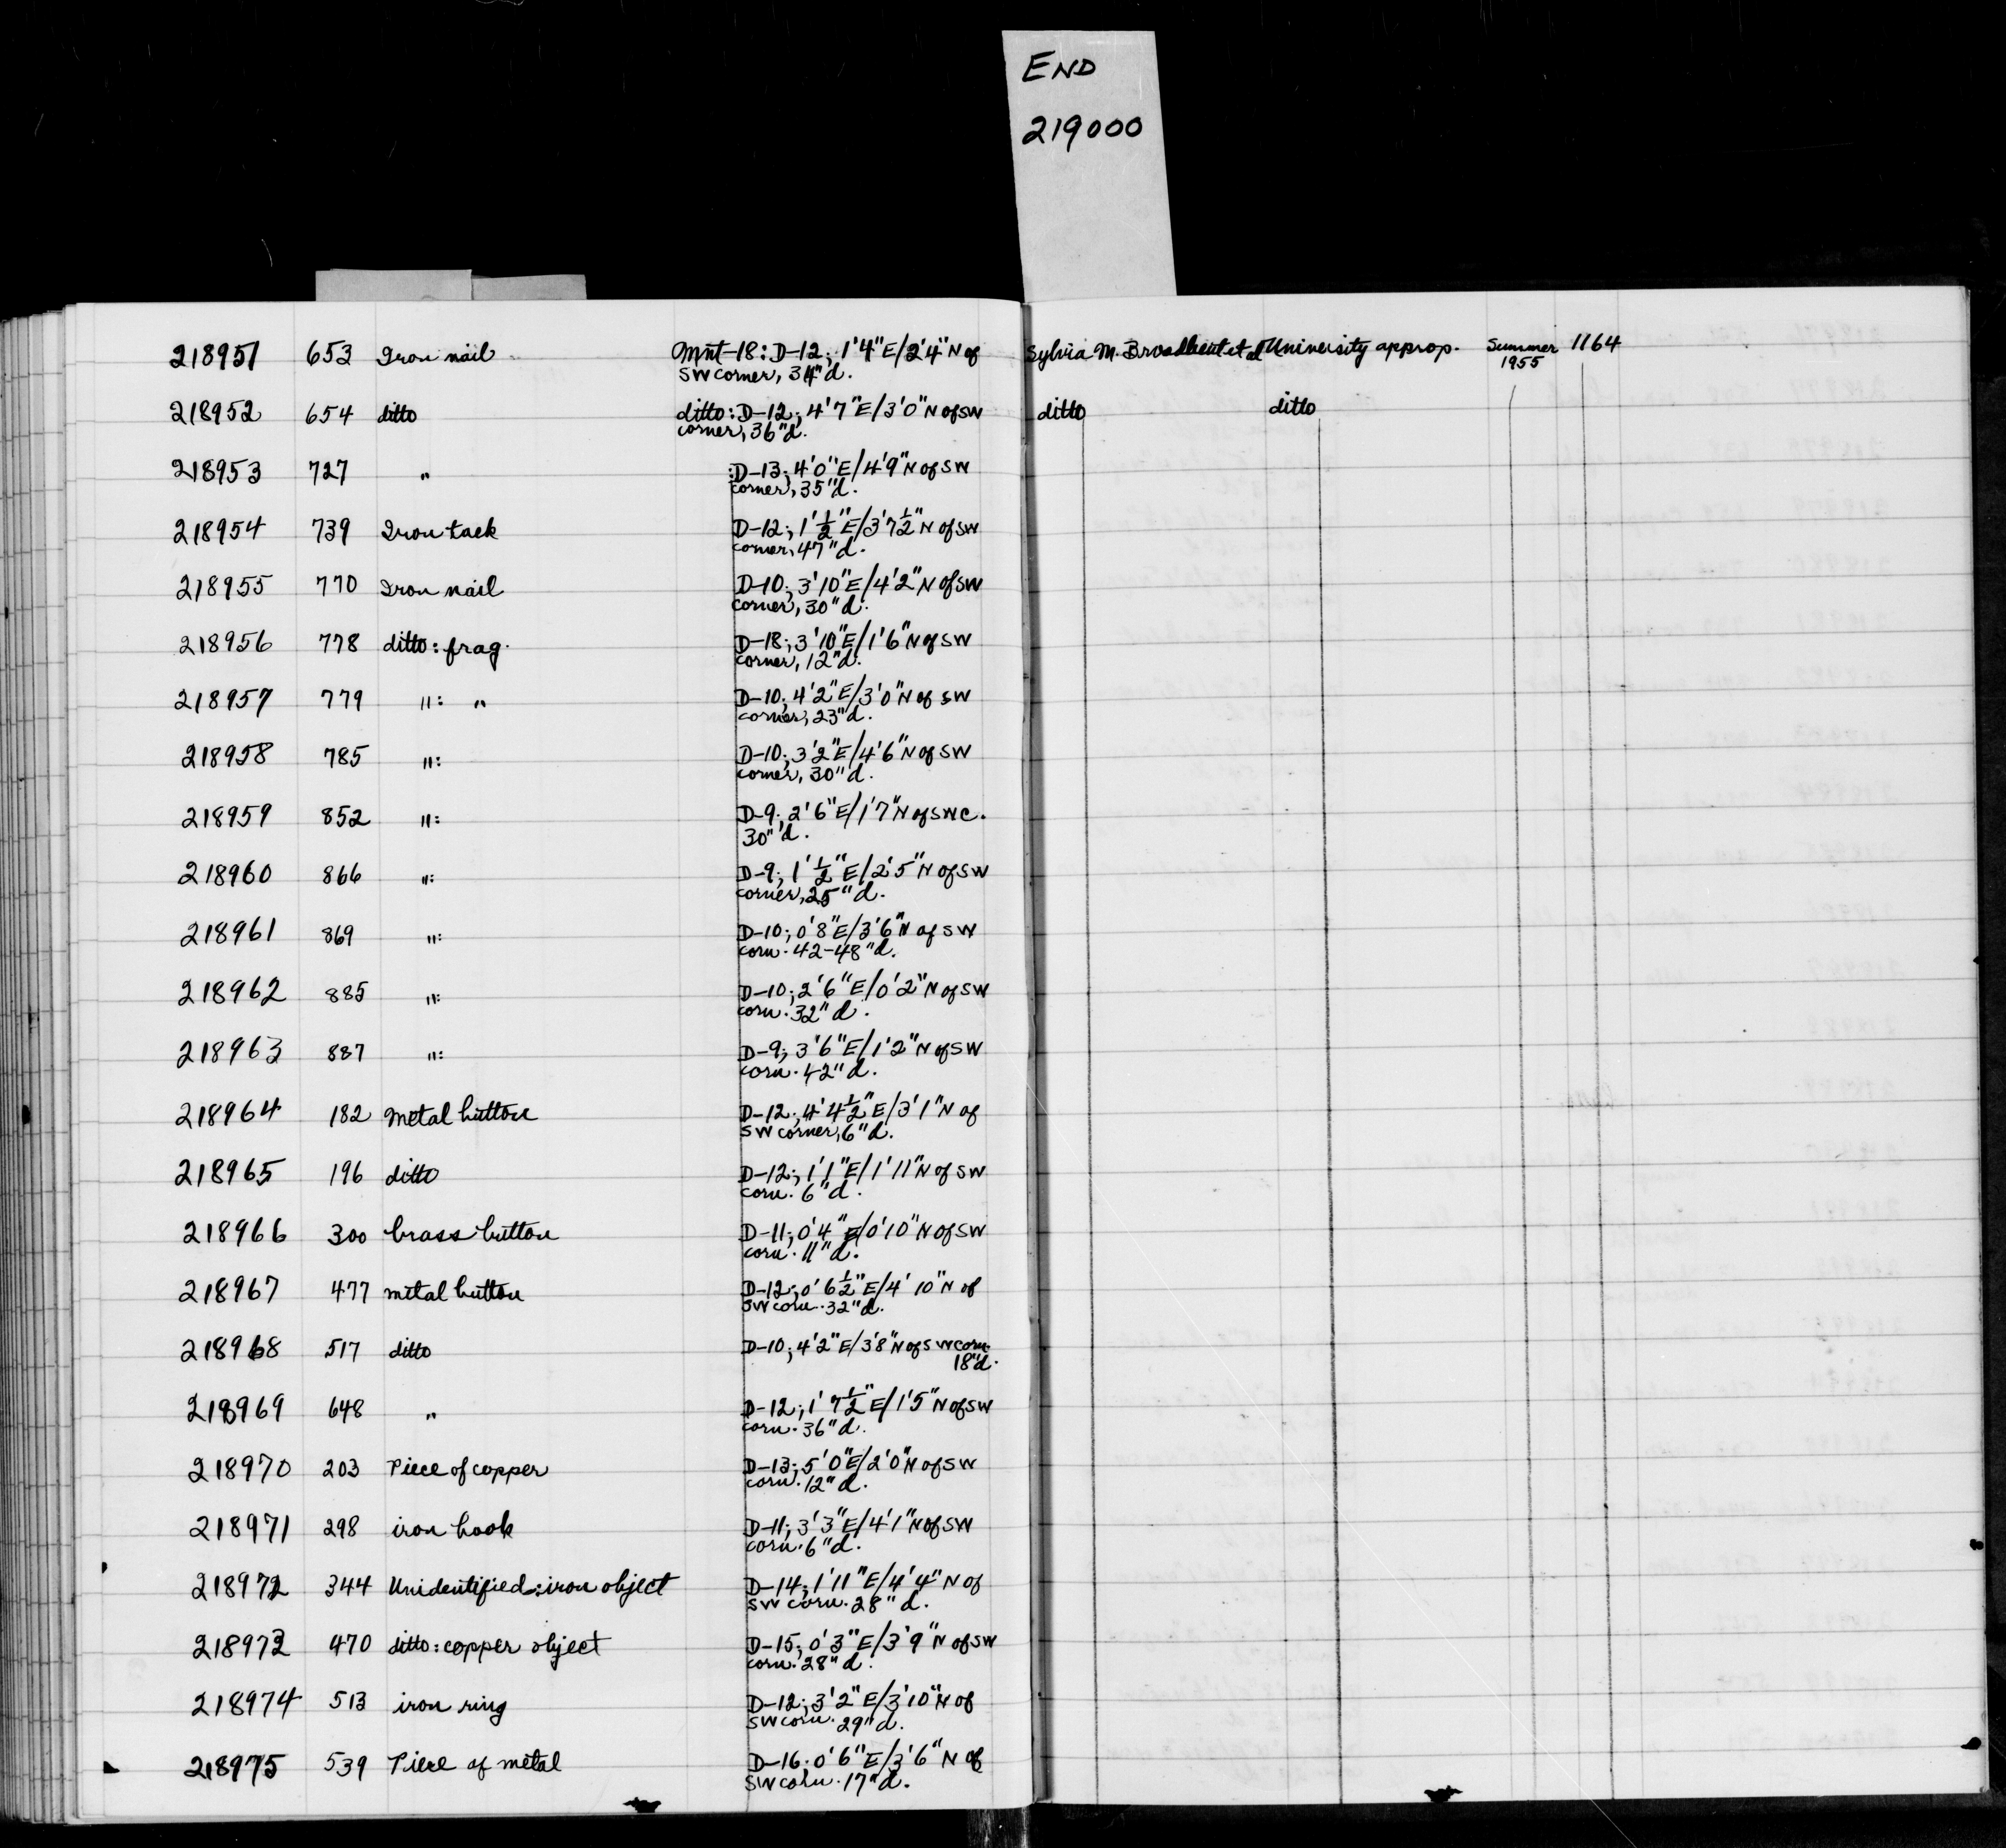 END
219000
218951 653 Iron nail Mnt-18: D-12; 1'4"E/2'4"N of Sylvia M. Broadbent et al University approp. Summer 1164
SW corner, 34"d. 1955
218952 654 ditto ditto: D-12; 4'7"E/3'0"N of SW ditto ditto
corner, 36"d.
218953 727 " :D-13; 4'0"E/4'9"N of SW
corner, 35"d.
218954 739 Iron tack D-12; 1'½"E/3'7½"N of SW
corner, 47"d.
218955 770 Iron nail D-10; 3'10"E/4'2"N of SW
corner, 30"d.
218956 778 ditto: frag. D-18; 3'10"E/1'6"N of SW
corner, 12"d.
218957 779 ": " D-10; 4'2"E/3'0"N of SW
corner, 23"d.
218958 785 ": D-10; 3'2"E/4'6"N of SW
corner, 30"d.
218959 852 ": D-9; 2'6"E/1'7"N of SWC.
30"d.
218960 866 ": D-9; 1'½"E/2'5"N of SW
corner, 25"d.
218961 869 ": D-10; 0'8"E/3'6"N of SW
corn. 42-48"d.
218962 885 ": D-10; 2'6"E/0'2"N of SW
corn. 32"d.
218963 887 ": D-9; 3'6"E/1'2"N of SW
corn. 42"d.
218964 182 Metal button D-12; 4'4½"E/3'1"N of
SW corner, 6"d.
218965 196 ditto D-12; 1'1"E/1'11"N of SW
corn. 6"d.
218966 300 brass button D-11; 0'4"E/0'10"N of SW
corn. 11"d.
218967 477 metal button D-12; 0'6½"E/4'10"N of
SW corn. 32"d.
218968 517 ditto D-10; 4'2"E/3'8"N of SW corn.
18"d.
218969 648 " D-12; 1'7½"E/1'5"N of SW
corn. 36"d.
218970 203 Piece of copper D-13; 5'0"E/2'0"N of SW
corn. 12"d.
218971 298 iron hook D-11; 3'3"E/4'1"N of SW
corn. 6"d.
218972 344 Unidentified: iron object D-14; 1'11"E/4'4"N of
SW corn. 28"d.
218973 470 ditto: copper object D-15; 0'3"E/3'9"N of SW
corn. 28"d.
218974 513 iron ring D-12; 3'2"E/3'10"N of
SW corn. 29"d.
218975 539 Piece of metal D-16; 0'6"E/3'6"N of
SW corn. 17"d.